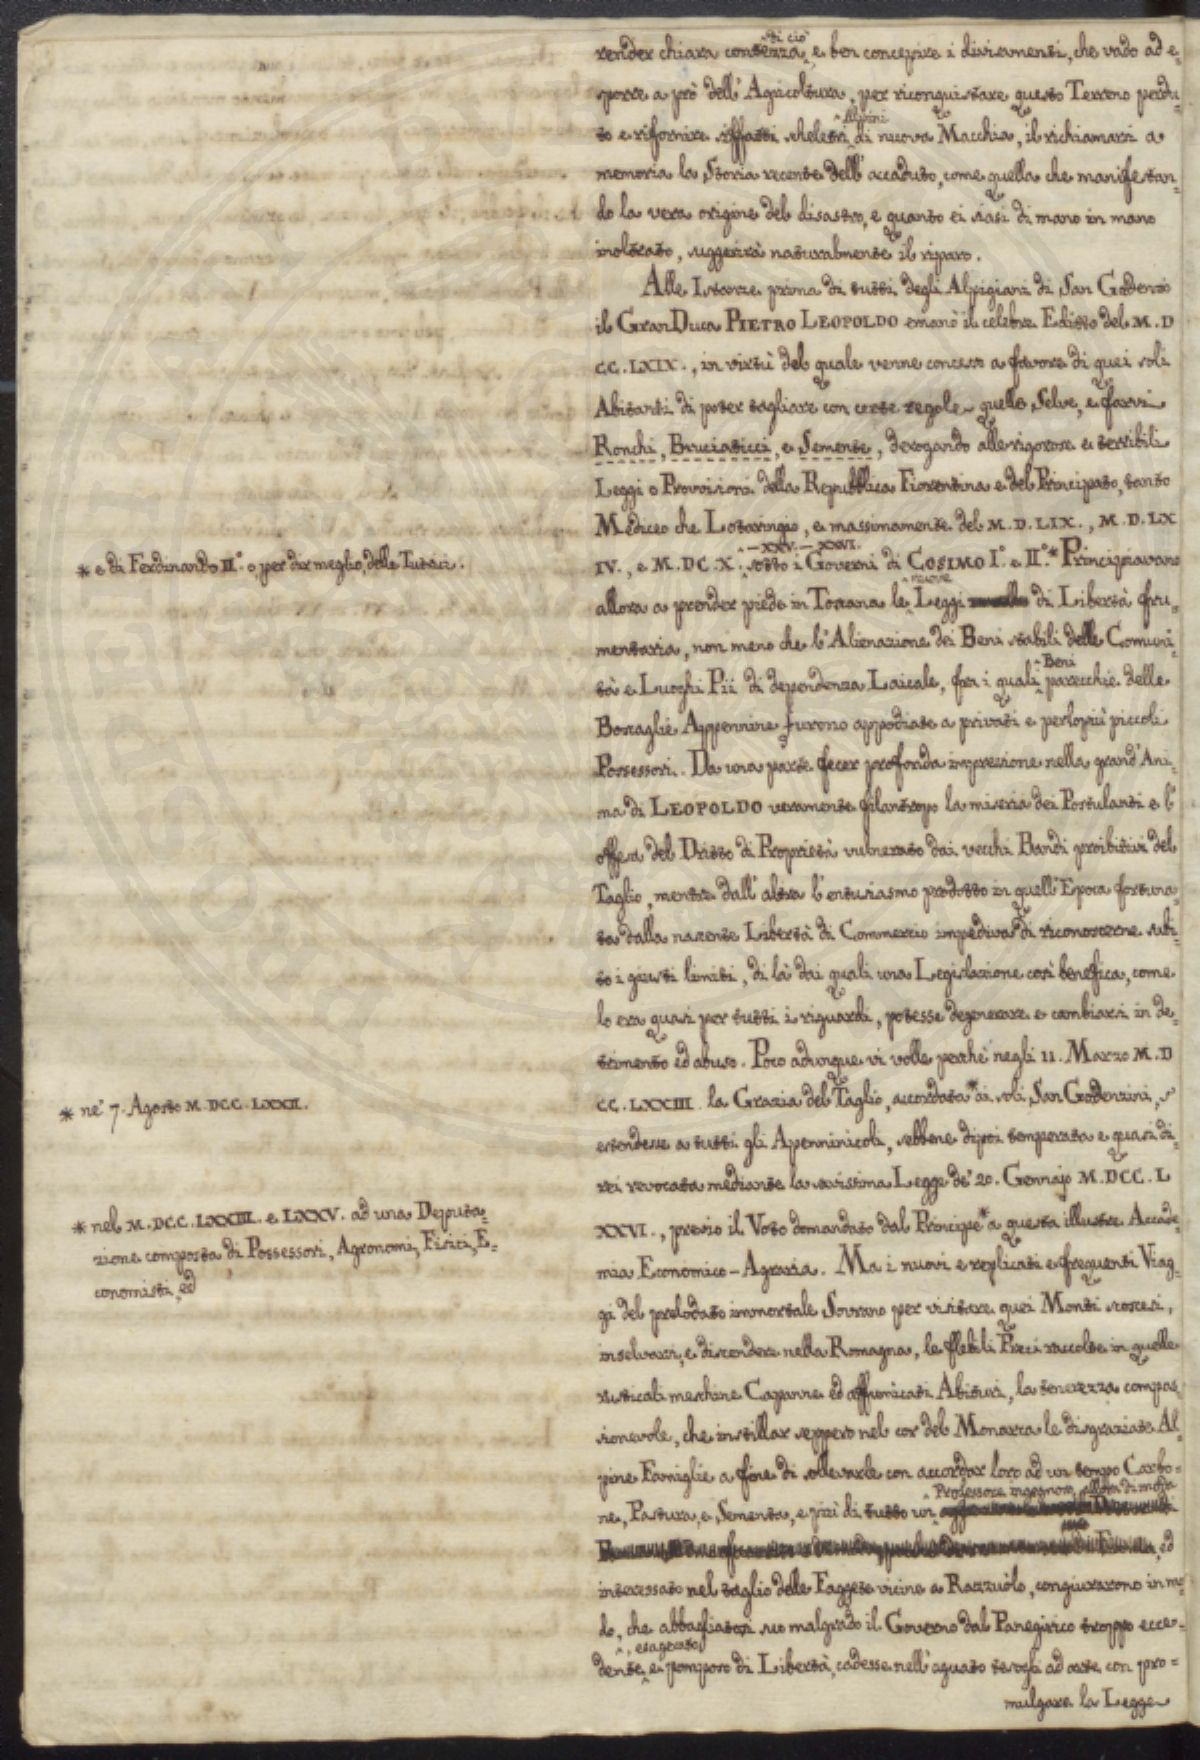 render chiara contezza ^di ciò^, e ben concepire i divisamenti, che vado ad e-
sporre a prò dell'Agricoltura, per riconquistare questo Terreno perdu-
to e rifornire siffatti scheletri ^Alpini^ di nuova Macchia, il richiamarsi a
memoria la Storia recente dell'accaduto, come quella che manifestan-
do la vera origine del disastro, e quanto ei siasi di mano in mano
inoltrato, suggerirà naturalmente il riparo.
Alle Istanze prima di tutti degli Alpigiani di San Godenzo
il GranDuca PIETRO LEOPOLDO emanò il celebre Editto del M.D
CC.LXIX., in virtù del quale venne concesso a favore di quei soli
Abitanti di poter tagliare con certe regole quelle Selve, e farvi
Ronchi, Bruciaticci, e Semente, derogando alle rigorose e terribili
Leggi e Provvisioni della Repubblica Fiorentina e del Principato, tanto
Mediceo che Lotaringio, e massimamente del M.D.LIX., M.D.LX
IV., e M.DC.X. ^–XXV.–XXVI.^ sotto i Governi di COSIMO I.º e II.º* Principiavano
* e di Ferdinando II.º o, per dir meglio, delle Tutrici.
allora a prender piede in Toscana le ^nuove^ Leggi di Libertà fru-
mentaria, non meno che l'Alienazione dei Beni stabili delle Comuni-
tà e Luoghi Pii di dependenza Laicale, fra i quali ^Beni^ parecchie delle
Boscaglie Appennine furono appodiate a privati e perlopiù piccoli
Possessori. Da una parte fecer profonda impressione nella grand'Ani-
ma di LEOPOLDO veramente filantropo la miseria dei Postulanti e l'
offesa del Dritto di Proprietà vulnerato dai vecchi Bandi proibitivi del
Taglio, mentre dall'altra l'entusiasmo prodotto in quell'Epoca fortuna-
ta dalla nascente Libertà di Commercio impediva di riconoscerne subi-
to i giusti limiti, di là dai quali una Legislazione così benefica, come
lo era quasi per tutti i riguardi, potesse degenerare e cambiarsi in de-
trimento ed abuso. Poco adunque vi volle perchè negli 11. Marzo M.D
CC.LXXIII. la Grazia del Taglio, accordata* ai soli San Godenzini, s'
* ne' 7. Agosto M.DCC.LXXII.
estendesse a tutti gli Apenninicoli, sebbene dipoi temperata e quasi di-
rei revocata mediante la savissima Legge de' 20. Gennajo M.DCC.L
XXVI., previo il Voto domandato dal Principe* a questa illustre Accade-
* nel M.DCC.LXXIII. e LXXV. ad una Deputa-
zione composta di Possessori, Agronomi, Fisici, E-
conomisti, ed
mia Economico-Agraria. Ma i nuovi e replicati e frequenti Viag-
gi del prelodato immortale Sovrano per visitare quei Monti scoscesi,
inselvarsi, e discendere nella Romagna, le flebili Preci raccolte in quelle
rusticali meschine Capanne ed affumicati Abituri, la tenerezza compas-
sionevole, che instillar seppero nel cor del Monarca le disgraziate Al-
pine Famiglie a fine di sollevarle con accordar loro ad un tempo Carbo-
ne, Pastura, e Sementa, e più di tutto un ^Professore ingegnoso, allora di moda^
ed
interessato nel taglio delle Faggete vicine a Razzuòlo, congiurarono in mo-
do, che abbagliatosi suo malgrado il Governo dal Panegirico troppo ecce-
dente, ^esagerato,^ e pomposo di Libertà, cadesse nell'aguato tesogli ad arte con pro-
mulgare la Legge